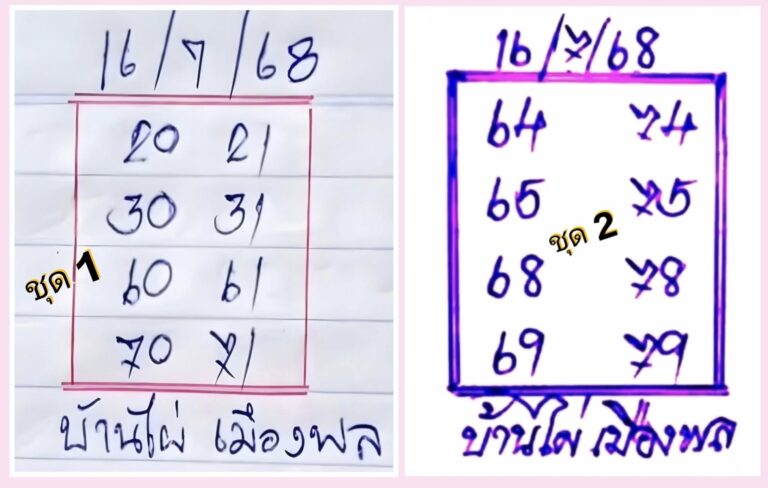 16/7/68
20 21
30 31
60 61
70 71
ชุด 1
บ้านไผ่ เมืองพล
16/7/68
64 74
65 75
68 78
69 79
ชุด 2
บ้านไผ่ เมืองพล